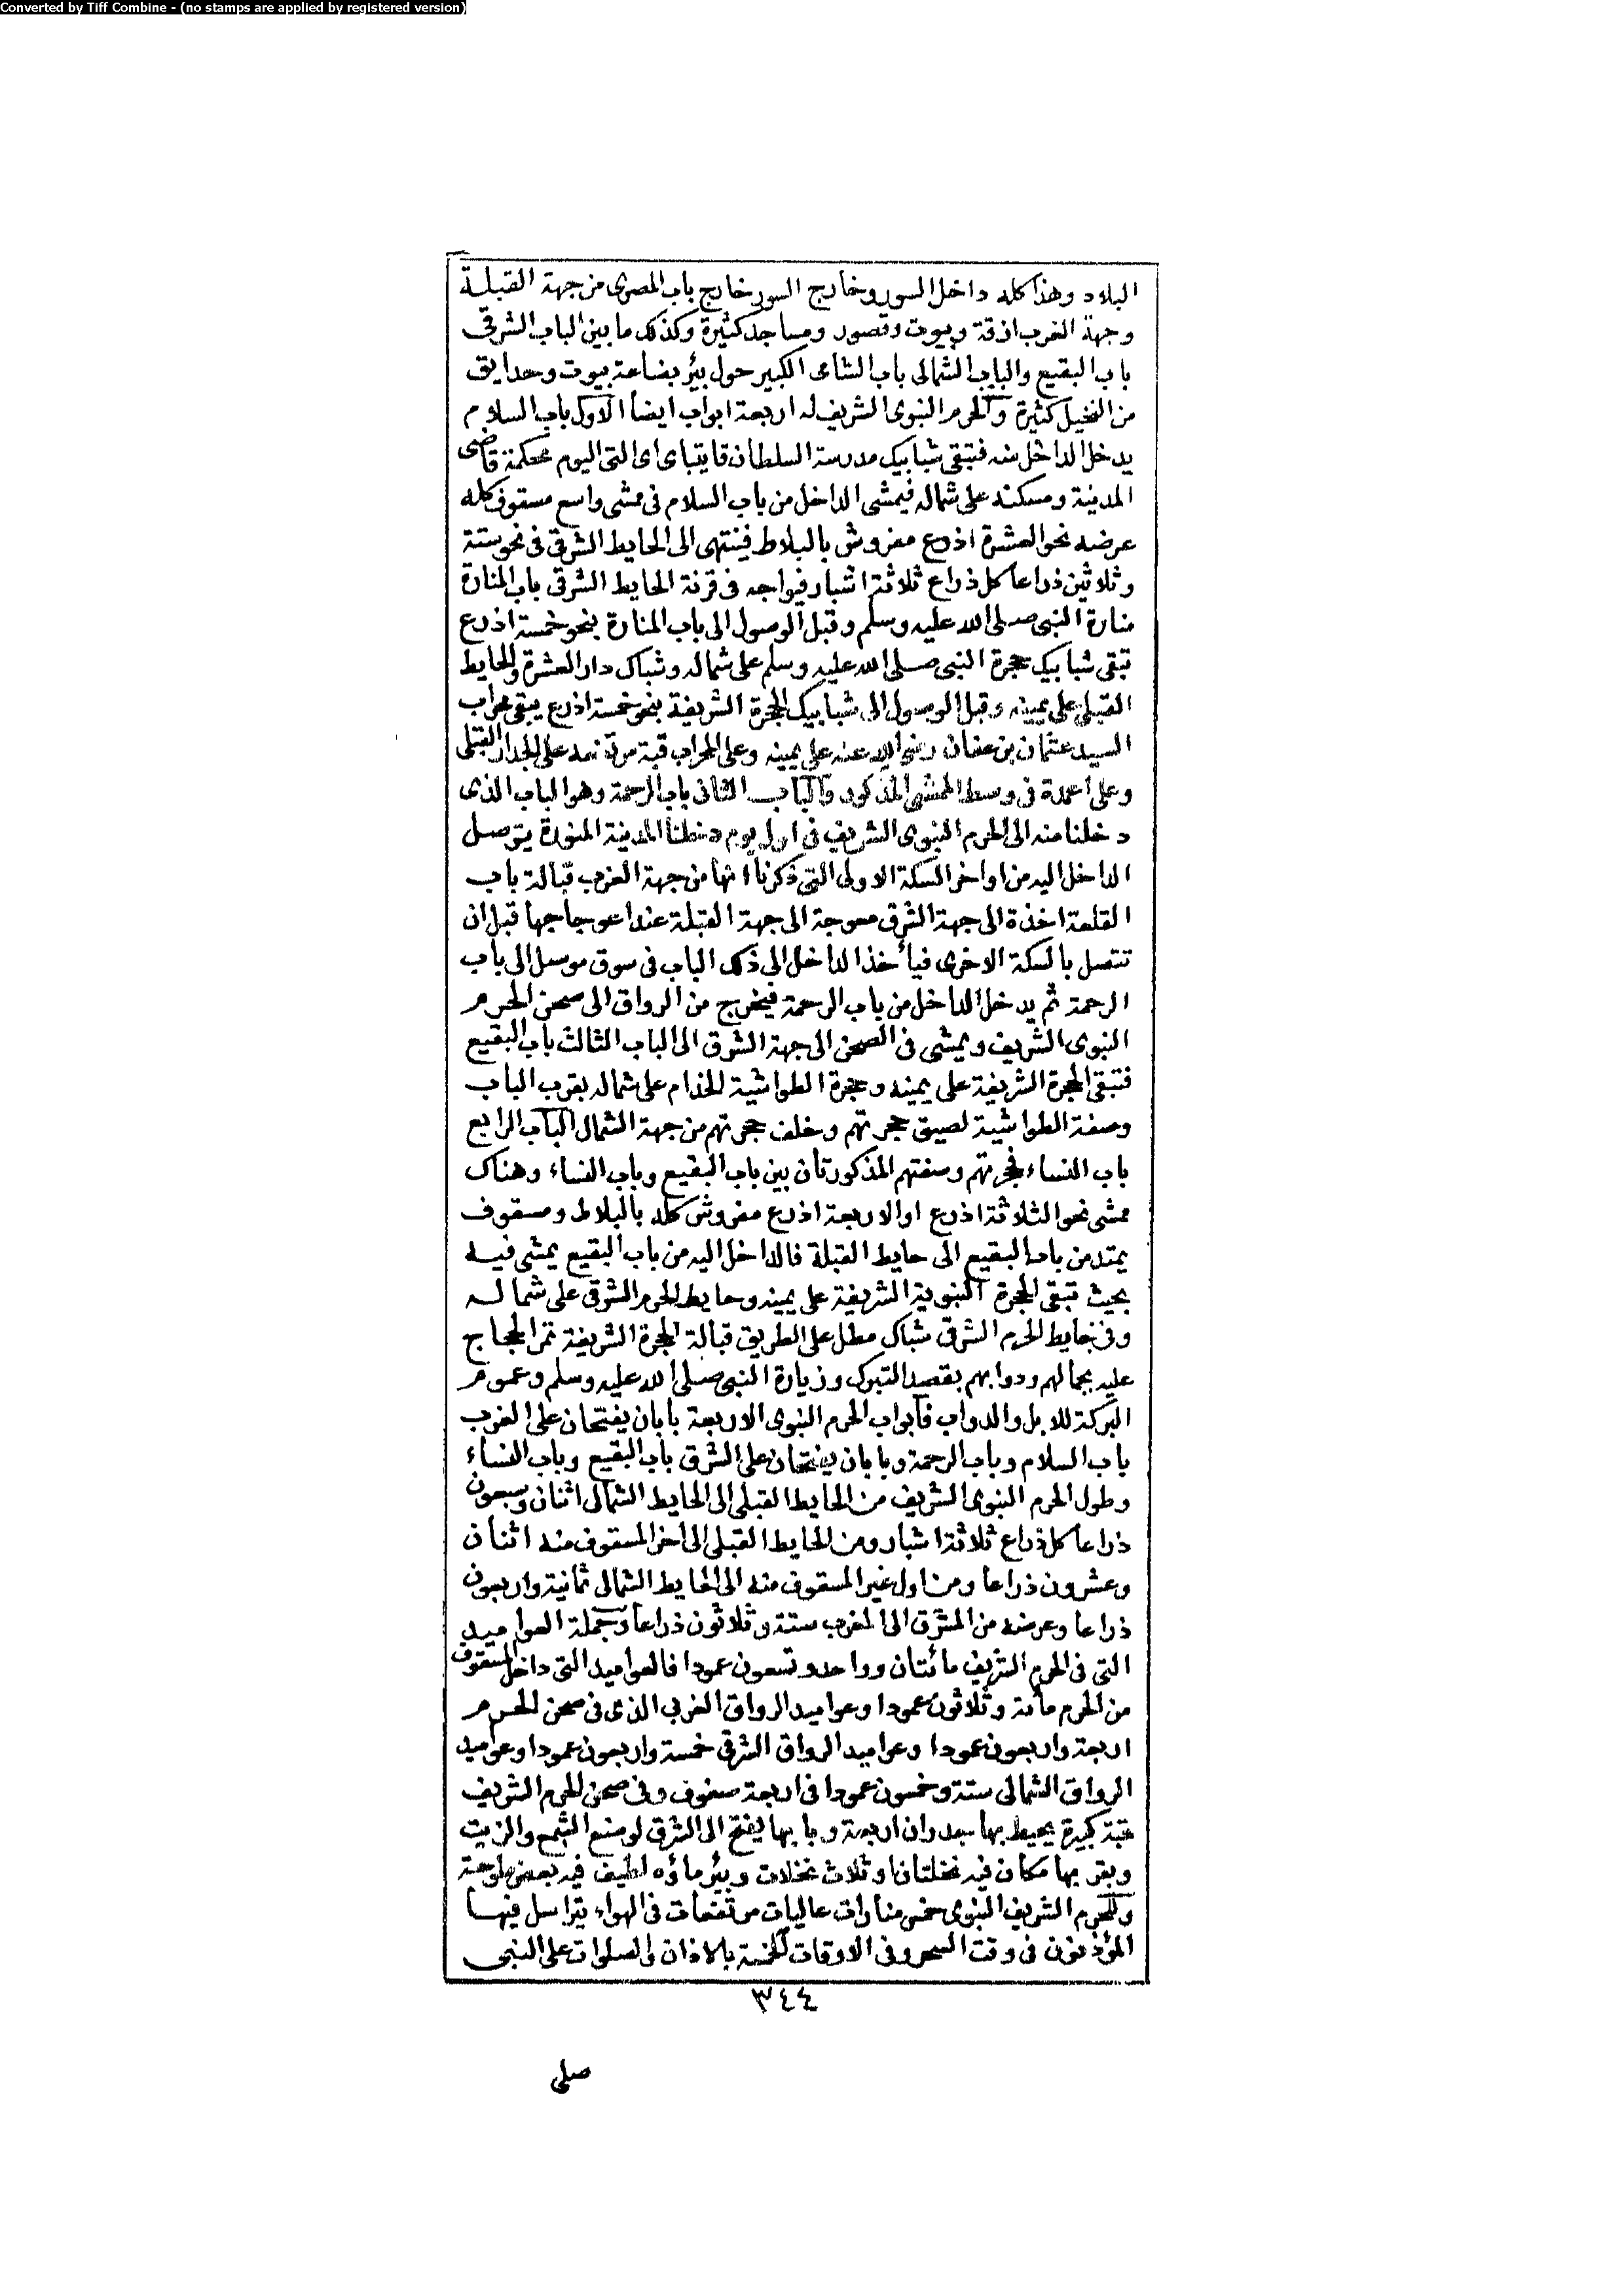 Converted by Tiff Combine - (no stamps are applied by registered version)
البلاد وهذا كله داخل السور وخارج السور خارج باب المصرى من جهة القبلة
وجهة الغرب ازقة وبيوت وقصور ومساجد كثيرة وكذلك ما بين الباب الشرقى
باب البقيع والباب الشمالى باب الشامى الكبير حول بئر بضاعة بيوت وحدايق
من النخيل كثيرة وللحرم النبوى الشريف له اربعة ابواب ايضا الاول باب السلام
يدخل الداخل منه فتبقى شبابيك مدرسة السلطان قايتباى اى التى اليوم محكمة قاضى
المدينة ومسكنه على شماله فيمشى الداخل من باب السلام فى ممشى واسع مسقوف كله
عرضه نحو العشرة اذرع مفروش بالبلاط فينتهى الى الحايط الشرقى فى نحو ستة
وثلاثين ذراعا كل ذراع ثلاثة اشبار فيواجه فى قرنة الحايط الشرقى باب المنارة
منارة النبى صلى الله عليه وسلم وقبل الوصول الى باب المنارة بنحو خمسة اذرع
تبقى شبابيك حجرة النبى صلى الله عليه وسلم على شماله وشباك دار العشرة والحايط
القبلى على يمينه وقبل الوصول الى شبابيك الحجرة الشريفة بنحو خمسة اذرع يبقى محراب
السيد عثمان بن عفان رضى الله عنه على يمينه وعلى المحراب قبة على الجدار القبلى
وعلى اعمدة فى وسط الممشى المذكور والباب الثانى باب الرحمة وهو الباب الذى
دخلنا منه الى الحرم النبوى الشريف فى اول يوم دخلنا المدينة المنورة يتوصل
الداخل اليه من اواخر السكة الاولى التى ذكرنا انها من جهة الغرب قبالة باب
القلعة اخذة الى جهة الشرق معوجة الى جهة القبلة عند اعوجاجها قبل ان
تتصل بالسكة الاخرى فيأخذ الداخل الى ذلك الباب فى سوق موصل الى باب
الرحمة ثم يدخل الداخل من باب الرحمة فيخرج من الرواق الى صحن الحرم
النبوى الشريف ويمشى فى الصحن الى جهة الشرق الى الباب الثالث باب البقيع
فتبقى الحجرة الشريفة على يمينه وحجرة الطواشية الخدام على شماله بقرب الباب
وصفة الطواشية لصيق حجرتهم وخلف حجرتهم من جهة الشمال الباب الرابع
باب النساء فحجرتهم وصفتهم المذكورتان بين باب البقيع وباب النساء وهناك
ممشى نحو الثلاثة اذرع او الاربعة اذرع مفروش كله بالبلاط ومسقوف
يمتد من باب البقيع الى حايط القبلة فالداخل اليه من باب البقيع يمشى فيه
بحيث تبقى الحجرة النبوية الشريفة على يمينه وحايط الحرم الشرقى على شماله
وفى حايط الحرم الشرقى شباك مطل على الطريق قبالة الحجرة الشريفة تمر الحجاج
عليه بجمالهم ودوابهم بقصد التبرك وزيارة النبى صلى الله عليه وسلم وعموم
البركة للابل والدواب فأبواب الحرم النبوى الاربعة بابان يفتحان على الغرب
باب السلام وباب الرحمة وبابان يفتحان على الشرق باب البقيع وباب النساء
وطول الحرم النبوى الشريف من الحايط القبلى الى الحايط الشمالى اثنان وسبعون
ذراعا كل ذراع ثلاثة اشبار ومن الحايط القبلى الى اخر المسقوف منه اثنان
وعشرون ذراعا ومن اول غير المسقوف منه الى الحايط الشمالى ثمانية واربعون
ذراعا وعرضه من المشرق الى المغرب ستة وثلاثون ذراعا وجملة العواميد
التى فى الحرم الشريف مائتان وواحد وتسعون عمودا فالعواميد التى داخل المسقوف
من الحرم مائة وثلاثون عمودا وعواميد الرواق الغربى الذى فى صحن الحرم
اربعة واربعون عمودا وعواميد الرواق الشرقى خمسة واربعون عمودا وعواميد
الرواق الشمالى ستة وخمسون عمودا فى اربعة صفوف وفى صحن الحرم الشريف
قبة كبيرة يحيط بها جدران اربعة وبابها يفتح الى الشرق لوضع الشمع والزيت
وبقربها مكان فيه نخلتان او ثلاث نخلات وبئر ماؤه لطيف فيه بعض ملوحة
وللحرم الشريف النبوى خمس منارات عاليات مرتفعات فى الهواء يتراسل فيها
المؤذنون فى وقت السحر وفى الاوقات الخمسة بالاذان والصلوات على النبى
٣٤٤
صلى